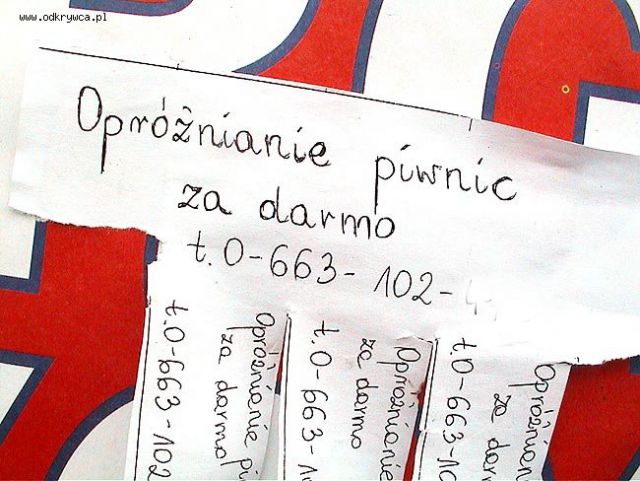 www.odkrywca.pl
Opróżnianie piwnic
za darmo
t. 0-663-102-4
Opróżnianie pi
za darmo
t. 0-663-102
Opróżnianie
za darmo
t. 0-663-1
Opróżnian
za darm
t. 0-663-10